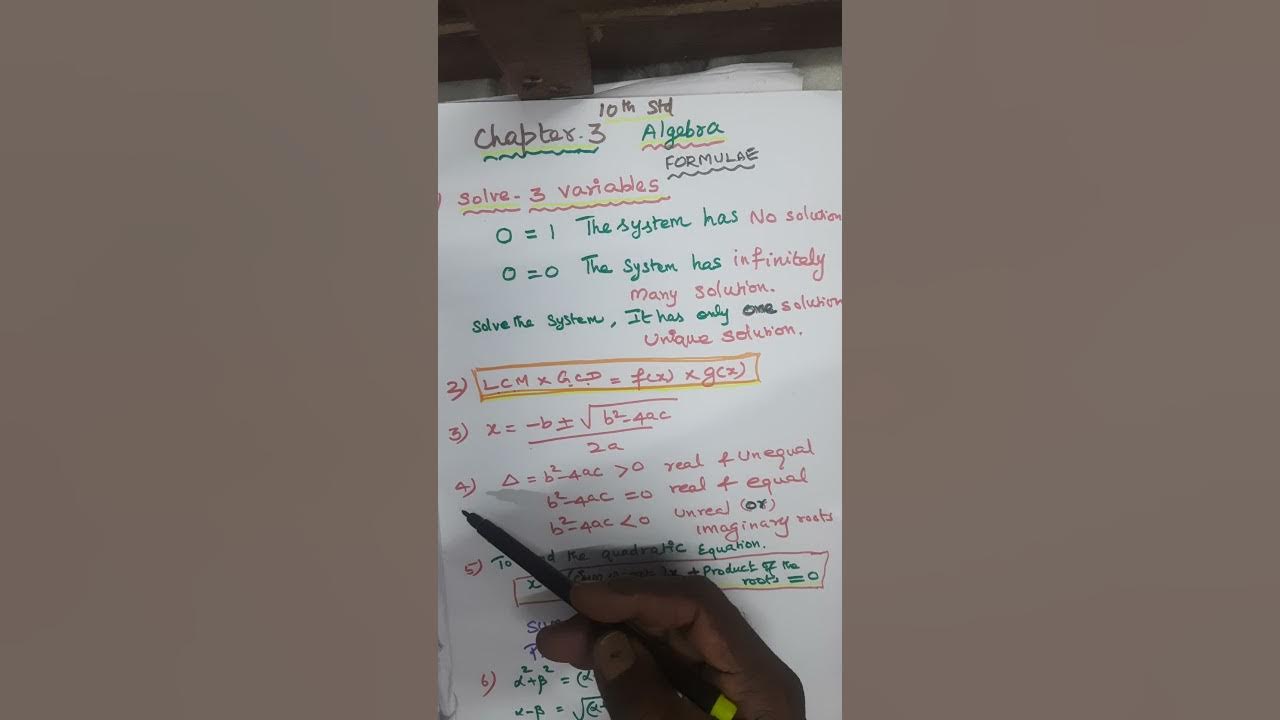 10th Std
Chapter.3 Algebra
FORMULAE
Solve- 3 variables
0 = 1 The system has No solution
0 = 0 The system has infinitely
many solution.
Solve the system, It has only one solution
Unique solution.
2) LCM x GCD = f(x) x g(x)
3) x = -b ± √b²-4ac
2a
4) Δ = b²-4ac > 0 real & unequal
b²-4ac = 0 real & equal
b²-4ac < 0 unreal (or)
imaginary roots
5) To the quadratic Equation.
x + Product of the
roots = 0
6) α²+β² = (α
α-β = √(α